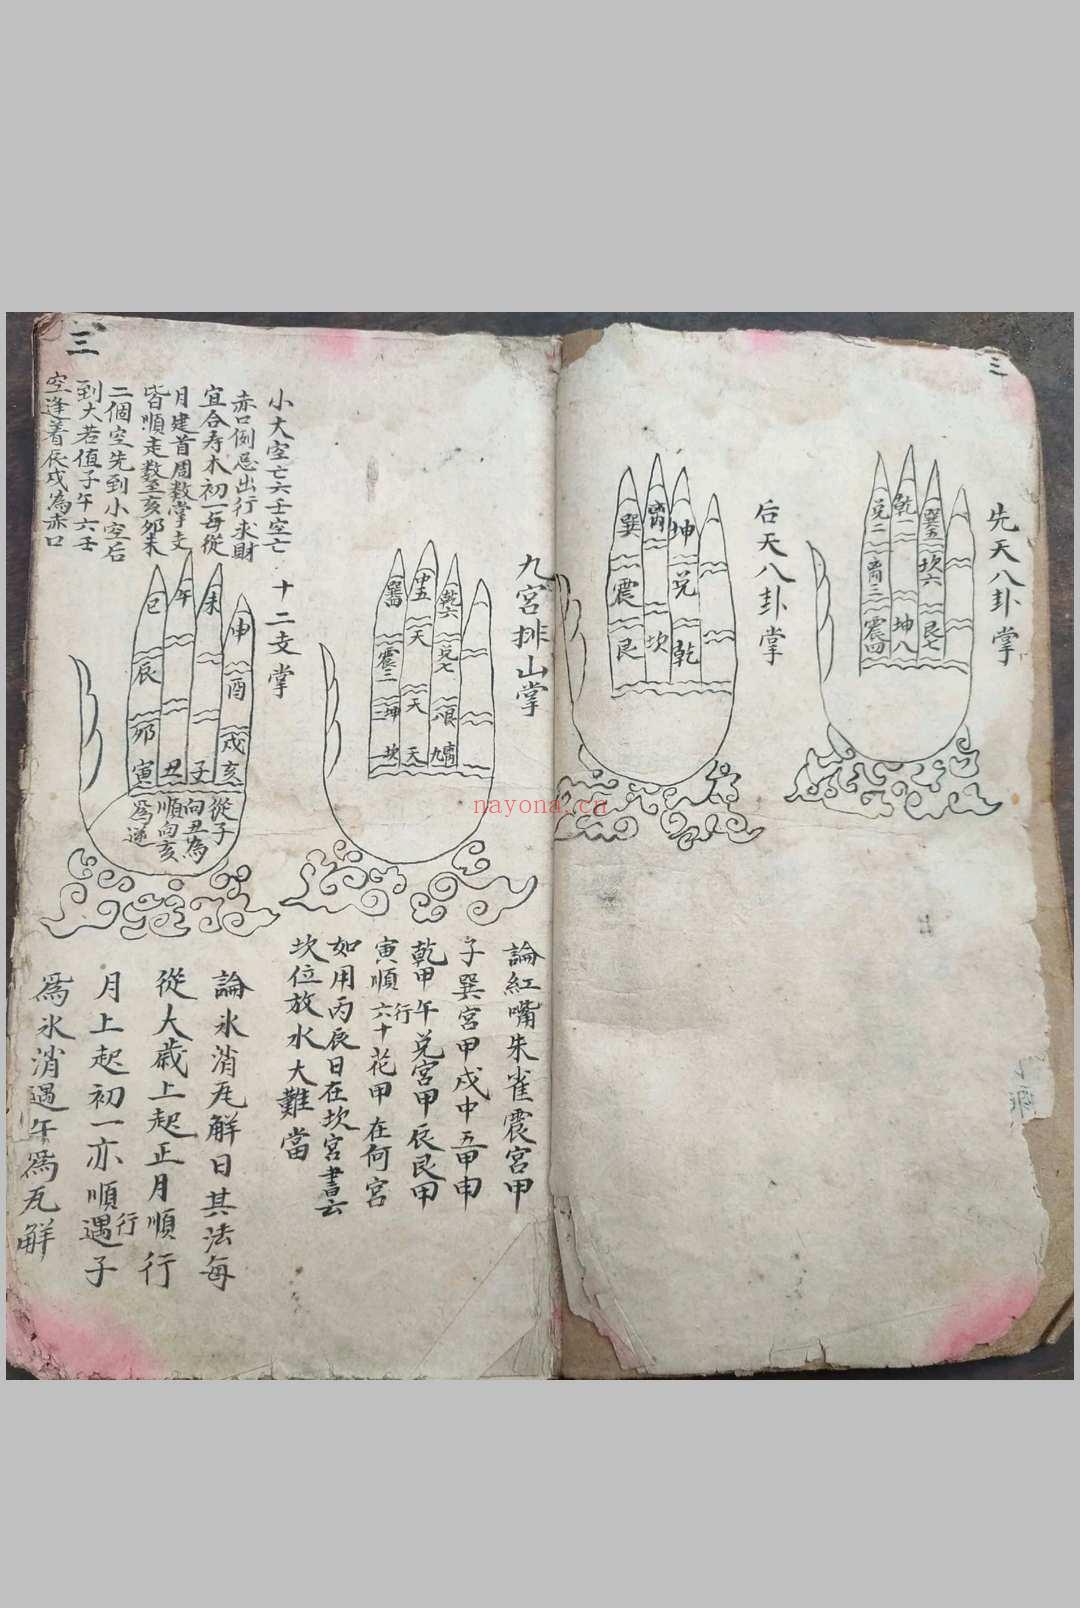 三
先天八卦掌
乾一
兌二
離三
震四
巽五
坎六
艮七
坤八
后天八卦掌
巽
離
坤
震
兌
艮
坎
乾
九宮排山掌
巽四
中五
乾六
震三
天
兌七
坤二
天
艮八
坎一
天
離九
論紅嘴朱雀震宮甲
子巽宮甲戌中五甲申
乾甲午兌宮甲辰艮甲
寅順行六十花甲在何宮
如用丙辰日在坎宮書云
坎位放水大難當
三
小大空亡六壬空亡
赤口例忌出行求財
宜合寿木初一每從
月建首周数掌支
皆順走数至亥夘未
二個空先到小空后
到大若值子午六壬
空逢着辰戌為赤口
十二支掌
巳
午
未
申
辰
酉
夘
戌
寅
丑
子
亥
從子
向丑為
順向亥
為逆
論氷消瓦解日其法每
從大歲上起正月順行
月上起初一亦順行遇子
爲氷消遇午爲瓦解
nayona.cn